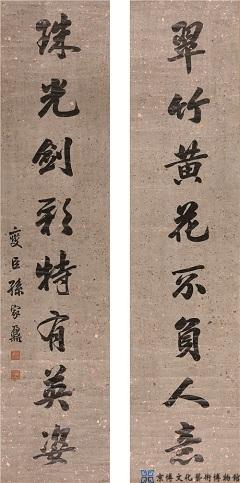 翠竹黄花不負人意
珠光劍彩特有英姿
燮臣孫家鼐
京博文化藝術博物館